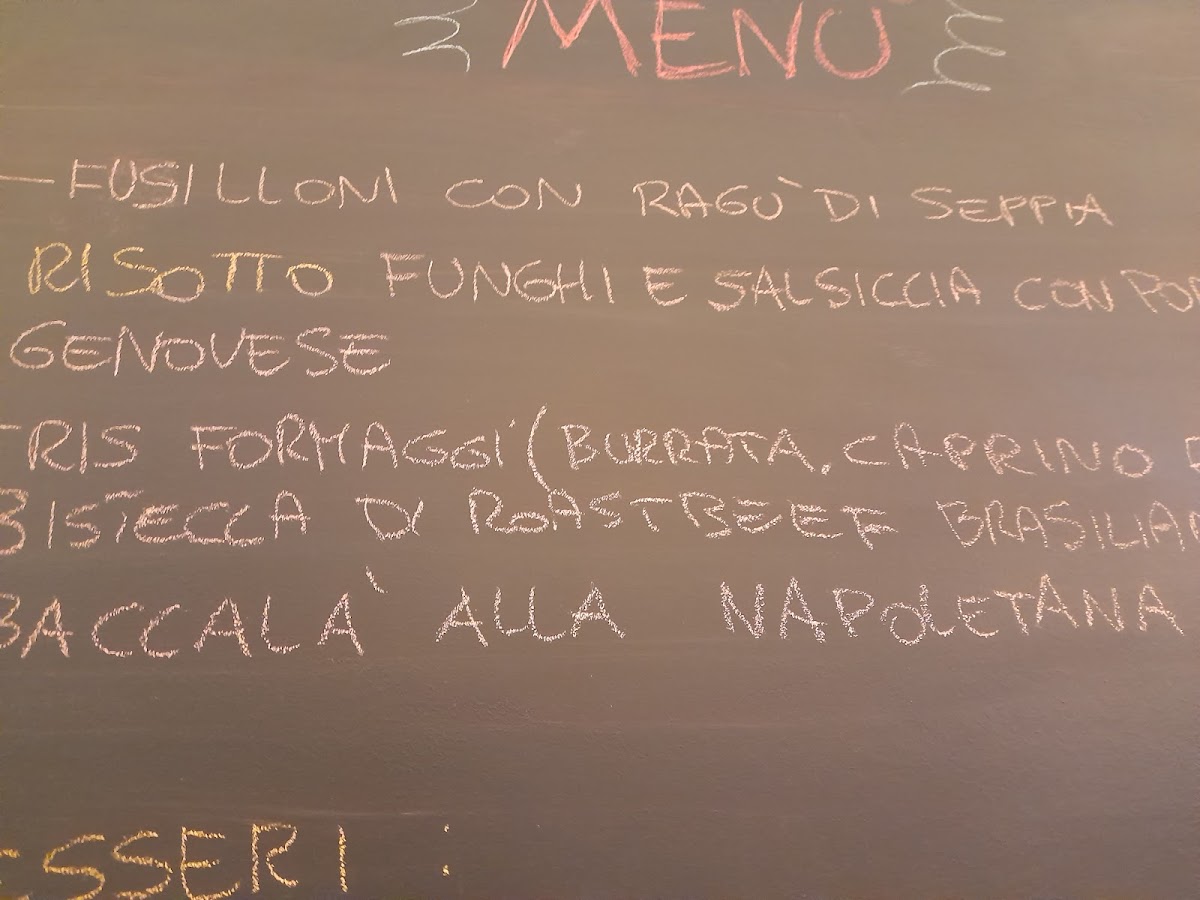 MENÙ
— FUSILLONI CON RAGÙ DI SEPPIA
RISOTTO FUNGHI E SALSICCIA CON
GENOVESE
TRIS FORMAGGI (BURRATA, CAPRINO
BISTECCA DI ROASTBEEF BRASILIAN
BACCALÀ ALLA NAPOLETANA
ESSERI :